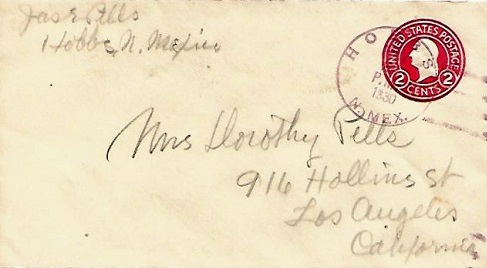 Jas E Pells
Hobbs, N. Mexico
HOBBS
P.M.
1930
N. MEX.
UNITED STATES POSTAGE
2 2
CENTS
Mrs Dorothy Pells
916 Hollins st
Los Angeles
California